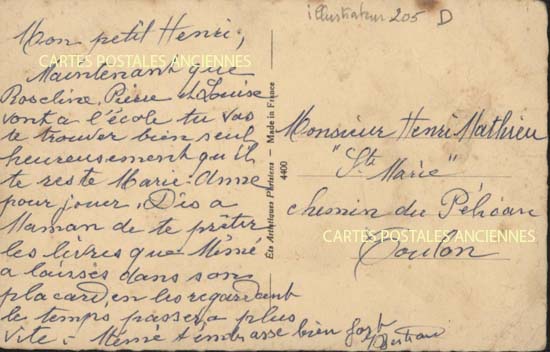 illustrateur 205 D
Mon petit Henri,
CARTES POSTALES ANCIENNES
Maintenant que
Roseline, Pierre et Louise
vont à l'école tu vas
te trouver bien seul
heureusement qu'il
te reste Marie-Anne
pour jouer. Dis à
Maman de te prêter
les livres que Mémé
a laissés dans son
placard, en les regardant
le temps passera plus
vite. Mémé t'embrasse bien fort
Ets Artistiques Parisiens - Made in France
4400
Monsieur Henri Mathieu
"Ste Marie"
chemin du Pélican
CARTES POSTALES ANCIENNES
Toulon